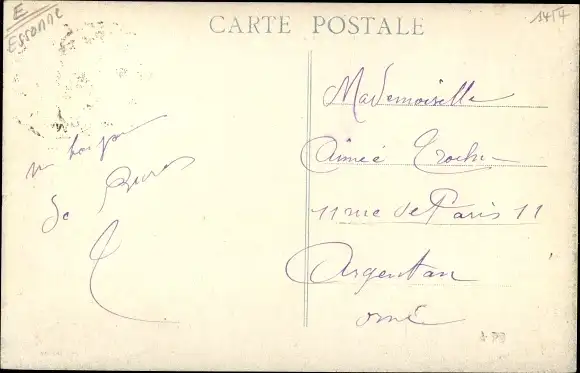 E
ESSONNE
CARTE POSTALE
1454
un bonjour
de Bures
Mademoiselle
Aimée
11 rue de Paris 11
Argentan
Orne